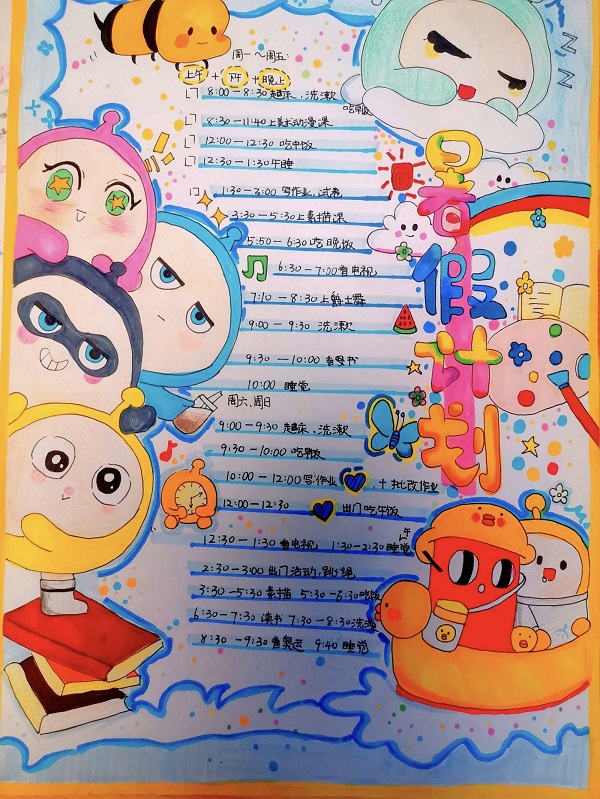 周一~周五:
上午+下午+晚上
8:00-8:30起床、洗漱
吃早饭
8:30-11:40上美术动漫课
12:00-12:30 吃中饭
12:30-1:30午睡
1:30-3:00 写作业、试卷
3:30-5:30上素描课
5:50-6:30吃晚饭
6:30-7:00看电视
7:10-8:30上爵士舞
9:00-9:30 洗漱
9:30-10:00看书
10:00 睡觉
周六、周日
9:00-9:30起床、洗漱
9:30-10:00吃早饭
10:00-12:00写作业、+批改作业
12:00-12:30 出门吃午饭
12:30-1:30看电视 1:30-2:30午睡
2:30-3:00出门活动,跳绳
3:30-5:30素描 5:30-6:30吃饭
6:30-7:30 读书 7:30-8:30洗漱
8:30-9:30看奥运 9:40 睡觉
暑假计划
Z
Z
Z